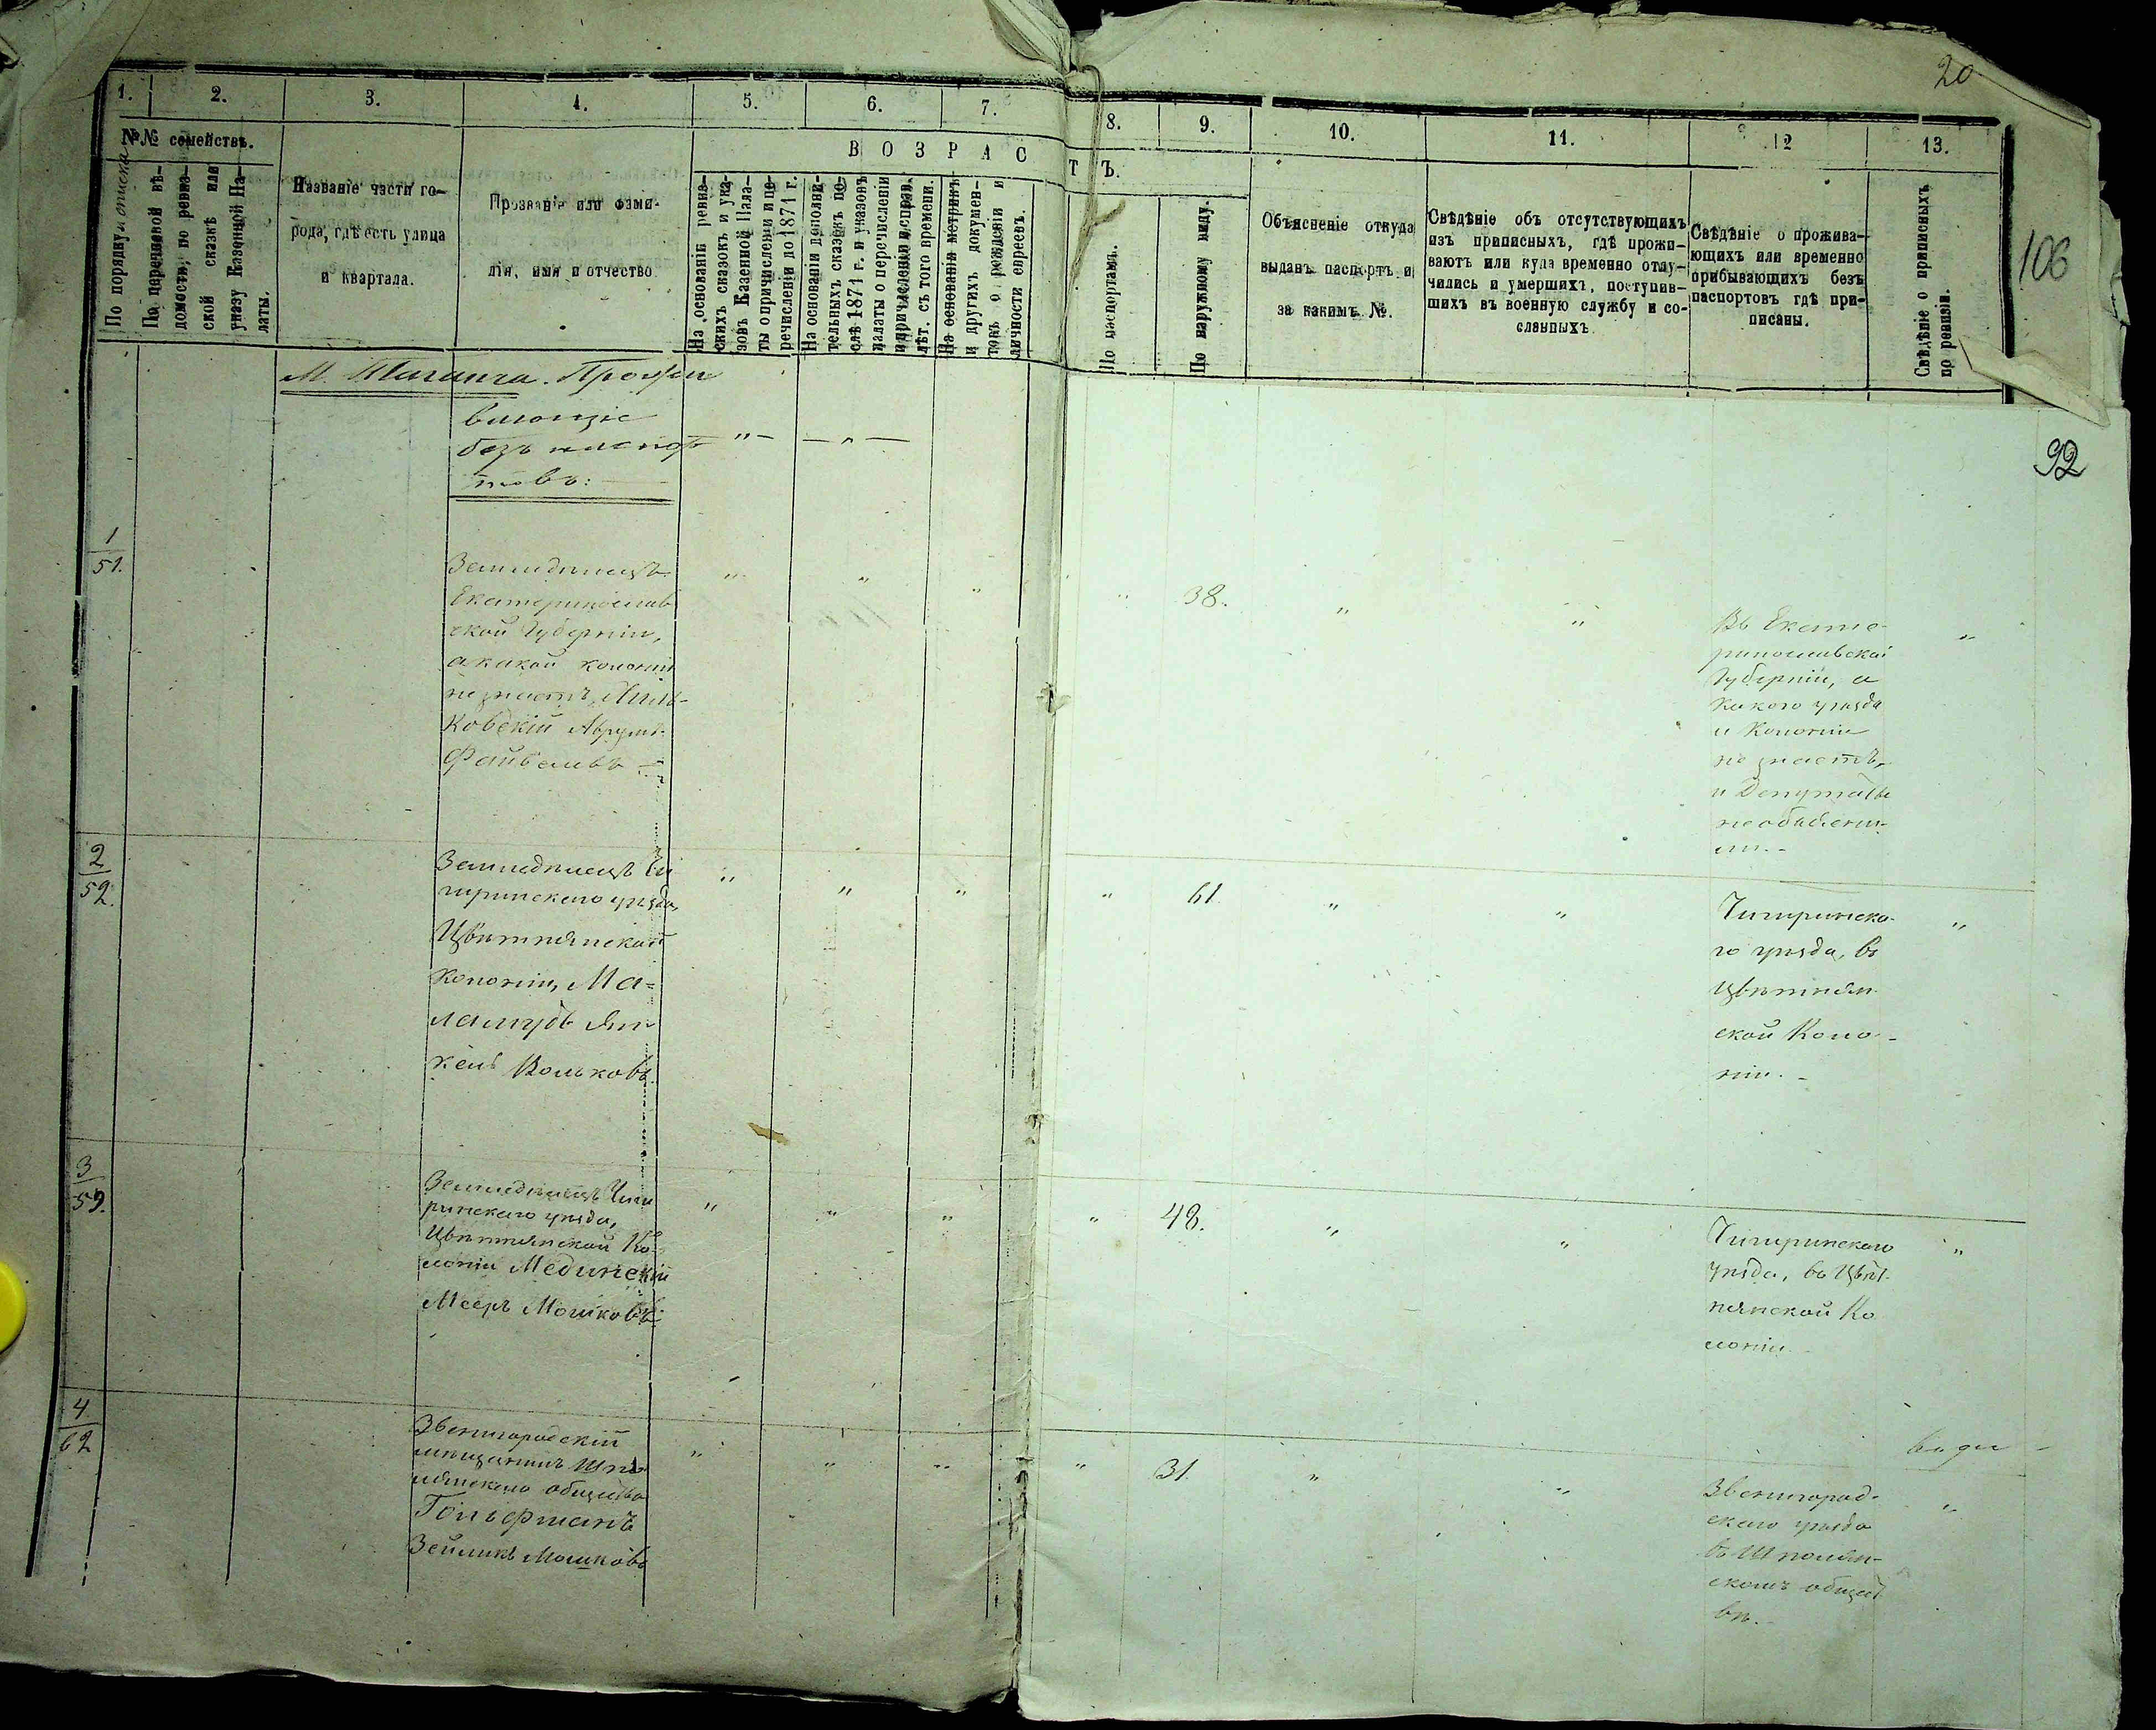 20
106
92
1.
2.
3.
4.
5.
6.
7.
8.
9.
10.
11.
12
13.
№№ семействъ.
По порядку описка
По перечневой вѣ-
домости, по ревиз-
ской сказкѣ или
указу Казенной Па-
латы.
Названіе части го-
рода, гдѣ есть улица
и квартала.
Прозваніе или фами-
лія, имя и отчество
ВОЗРАС
ТЪ.
На основаніи ревиз-
скихъ сказокъ и ука-
зовъ Казенной Пала-
ты о причисленіи и пе-
речисленіи до 1871 г.
На основаніи дополни-
тельныхъ сказокъ по-
слѣ 1871 г. и указовъ
палаты о перечисленіи
и причисленіи и исправ.
лѣт. съ того времени.
На основаніи метрикъ
и другихъ докумен-
товъ о рожденіи и
личности евреевъ.
По паспортамъ.
По наружному виду.
Объясненіе откуда
выданъ паспортъ и
за какимъ №.
Свѣдѣніе объ отсутствующихъ
изъ приписныхъ, гдѣ прожи-
ваютъ или куда временно отлу-
чились и умершихъ, поступив-
шихъ въ военную службу и со-
сланныхъ
Свѣдѣніе о прожива-
ющихъ или временно
прибывающихъ безъ
паспортовъ гдѣ при-
писаны.
Свѣдѣніе о приписныхъ
по ревизіи.
М. Таганча. Прожи
вающіе
безъ паспор
товъ:
1
51.
Земледѣлецъ
Екатеринослав
ской Губерніи,
а какой колоніи
не знаетъ,
ковскій Аврумъ
Файбелевъ
38.
Въ Екате-
ринославской
Губерніи, а
какого уѣзда
и Колоніи
не знаетъ,
и Депутаты
не объясни-
ли. -
2
52.
Земледѣлецъ Чи
гиринскаго уѣзда,
Цвѣтнянской
Колоніи, Ма=
ламудъ Ян
кель Вольковъ.
61.
Чигиринска-
го уѣзда, въ
Цвѣтнян-
ской Коло-
ніи. -
3
59.
Земледѣлецъ Чиги
ринскаго уѣзда,
Цвѣтнянской Ко-
лоніи Мединскій
Мееръ Мошковъ
48.
Чигиринскаго
уѣзда, въ Цвѣт-
нянской Ко
лоніи.
4
62
Звенигородскій
мѣщанинъ Шпо
лянскаго общества
Гольфманъ
Зейликъ Мошковъ
31.
Звенигород-
скаго уѣзда
въ Шполян-
скомъ общест
вѣ.